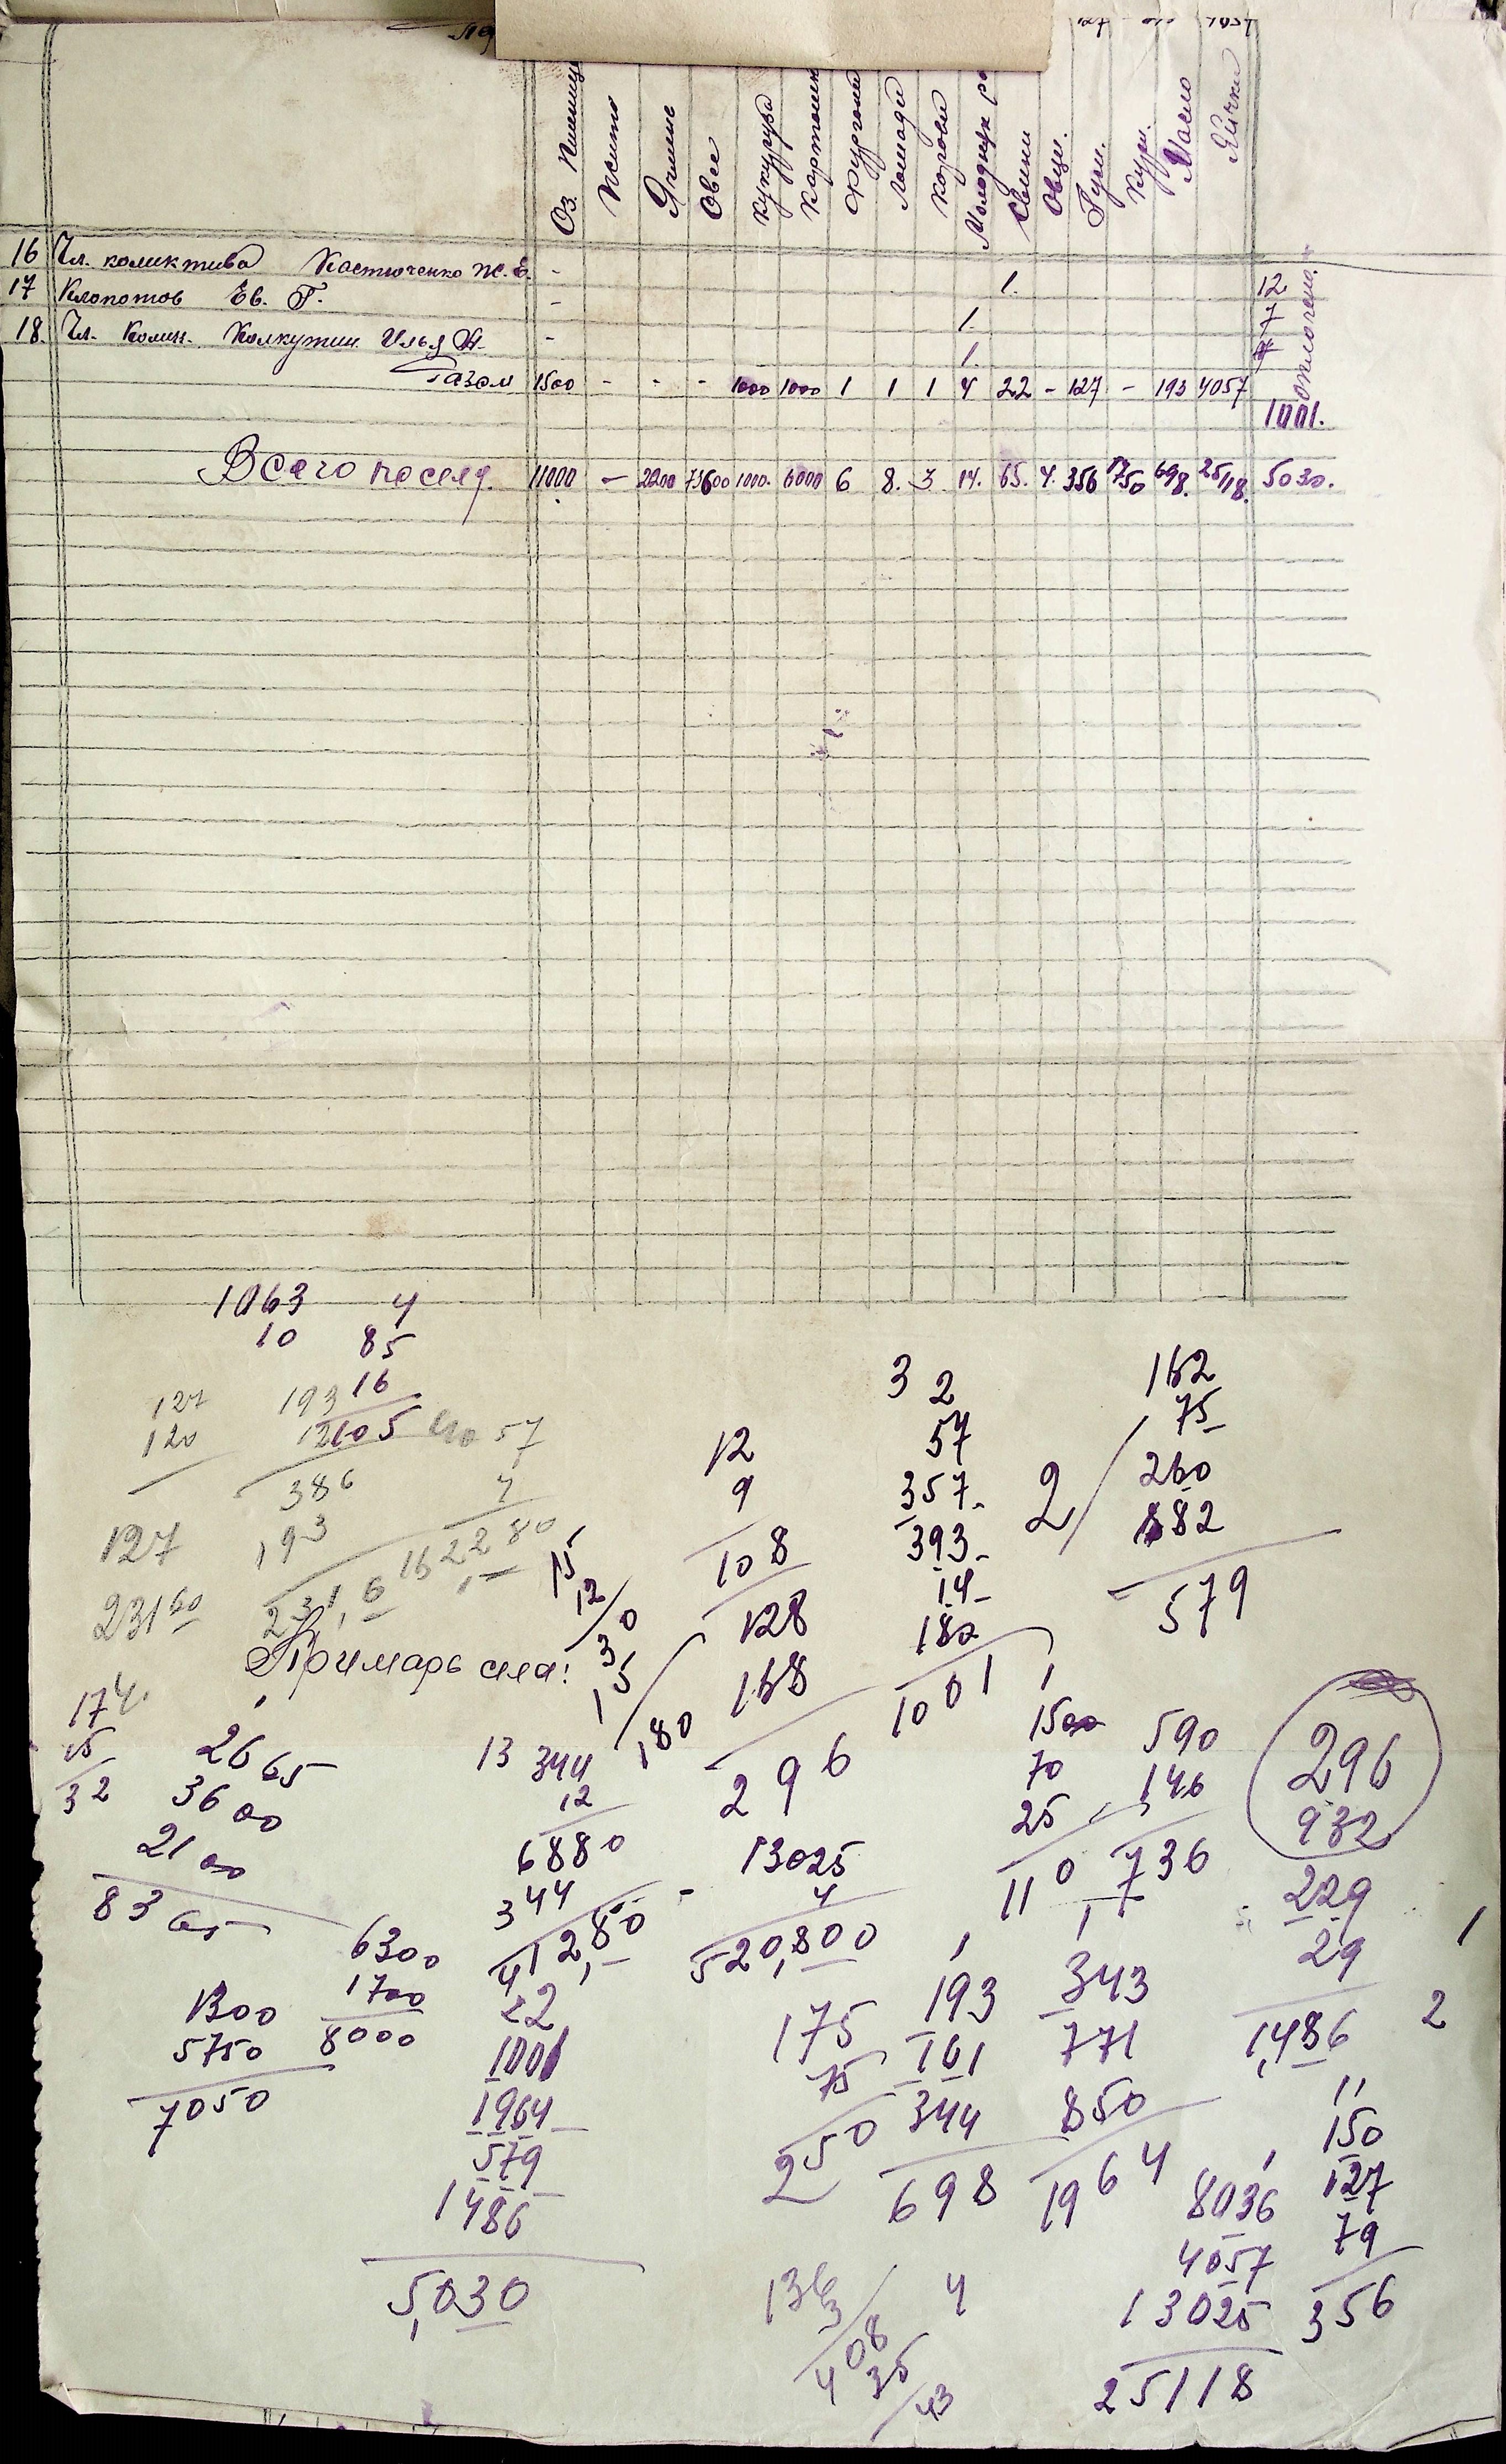 127 4057
Оз. Пшениц Жито Ячмень Овес кукуруза Картошка фургони Лошади корови Молодняк Свини Овци. Гуси. Кури. Масло Яички
16 Чл. коликтива Костюченко 1. 12
17 Клопотов Ев. Г. - 1. 7
18. Чл. Колик. Колкутин Илья - 1. 7
Разом 1500 - - - 1000 1000 1 1 1 4 22 - 127 - 193 4057 1001.
Всего посел. 11000 - 2200 73600 1000. 6000 6 8. 3 14. 65. 4. 356 1750 698. 25118. 5030.
1063 4
10 85
16
193
12105
127
120
4057
386
193
7
127
231,6
16228
231 60
Примарь села:
15
12
30
15
180
12
9
108
128
168
296
3 2
57
357
393
14
180
1001
162
75
260
2
182
579
174
15
32
2665
3600
2100
8365
13 344
12
6880
344
41280
13025
4
520,800
1500
70
25
110
590
146
736
296
932
229
29
1,486
1
2
6300
1700
8000
1300
5750
7050
22
1001
1964
579
1486
5,030
175
75
250
193
161
344
698
343
771
850
1964
150
127
79
356
8036
4057
13025
25118
136
3
408
35
43
4